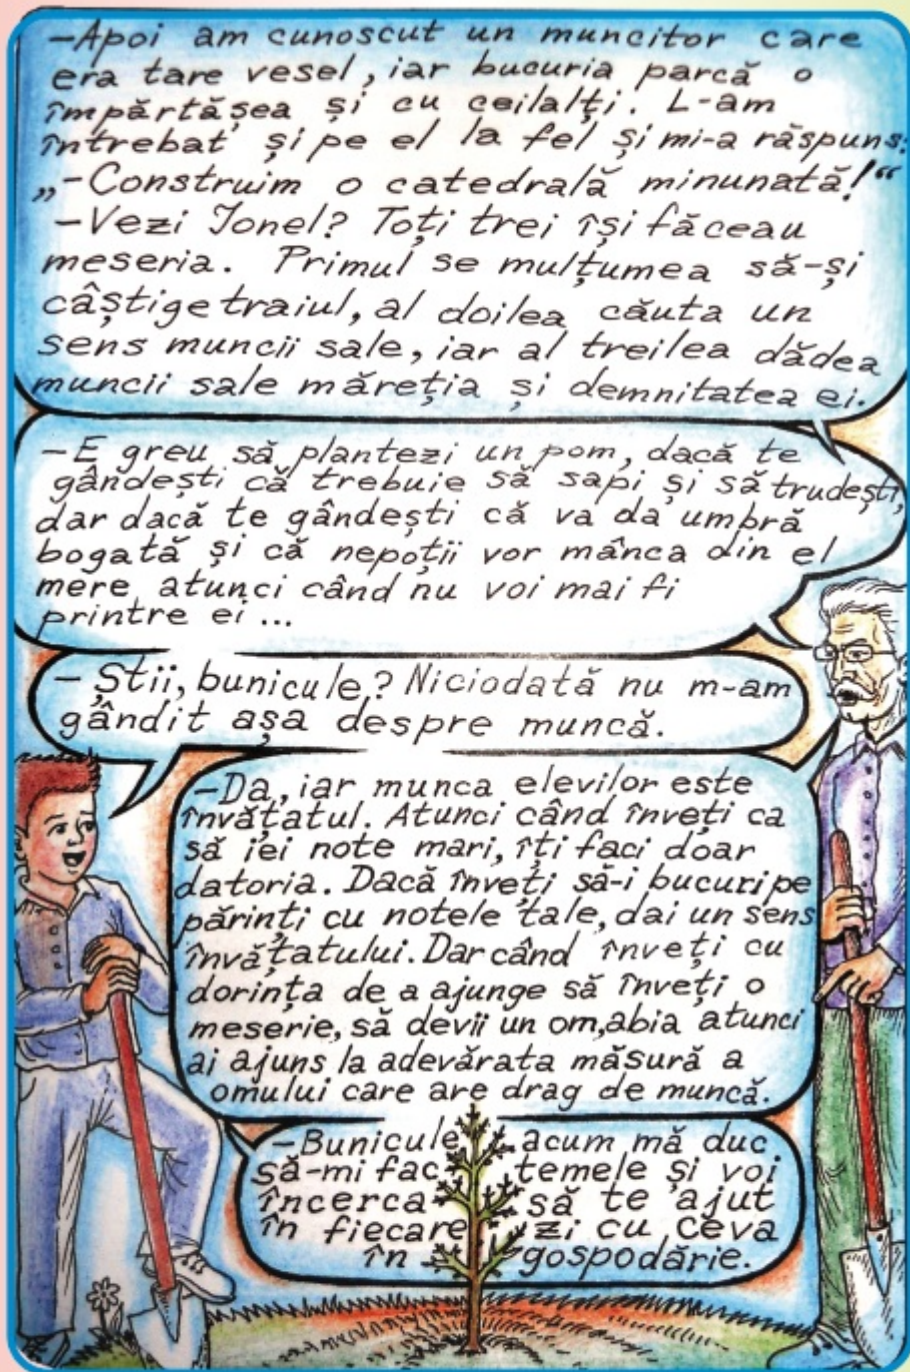 -Apoi am cunoscut un muncitor care
era tare vesel, iar bucuria parcă o
împărtășea și cu ceilalți. L-am
întrebat și pe el la fel și mi-a răspuns:
„-Construim o catedrală minunată!“
-Vezi Ionel? Toți trei își făceau
meseria. Primul se mulțumea să-și
câștige traiul, al doilea căuta un
sens muncii sale, iar al treilea dădea
muncii sale măreția și demnitatea ei.
-E greu să plantezi un pom, dacă te
gândești că trebuie să sapi și să trudești,
dar dacă te gândești că va da umbră
bogată și că nepoții vor mânca din el
mere, atunci când nu voi mai fi
printre ei ...
- Știi, bunicule? Niciodată nu m-am
gândit așa despre muncă.
-Da, iar munca elevilor este
învățatul. Atunci când înveți ca
să iei note mari, îți faci doar
datoria. Dacă înveți să-i bucuri pe
părinți cu notele tale, dai un sens
învățatului. Dar când înveți cu
dorința de a ajunge să înveți o
meserie, să devii un om, abia atunci
ai ajuns la adevărata măsură a
omului care are drag de muncă.
-Bunicule, acum mă duc
să-mi fac temele și voi
încerca să te ajut
în fiecare zi cu ceva
în gospodărie.